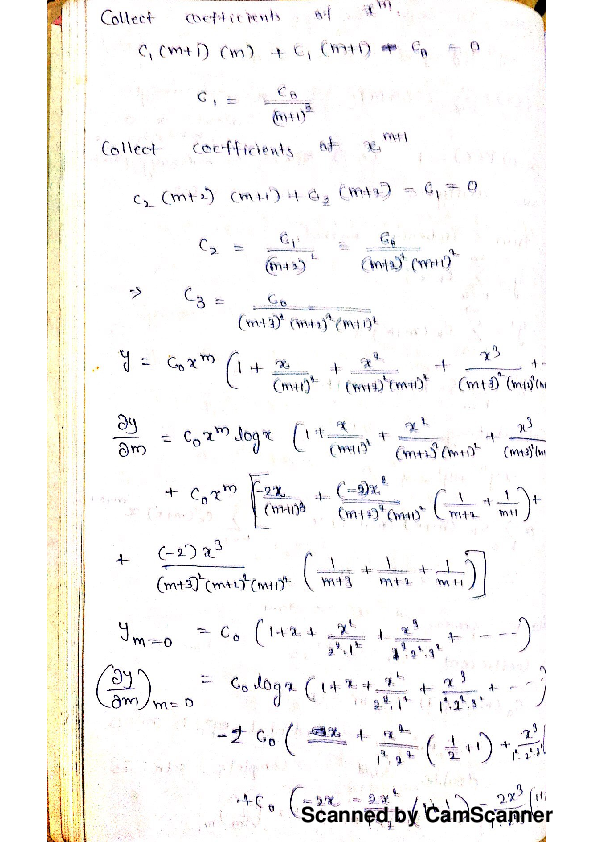 Collect coefficients of x^m.
C₁(m+1)(m) + C₁(m+1) - C₀ = 0
C₁ = C₀/(m+1)²
Collect coefficients of x^(m+1)
C₂(m+2)(m+1) + C₂(m+2) - C₁ = 0
C₂ = C₁/(m+2)² = C₀/(m+2)²(m+1)²
⇒ C₃ = C₀/(m+3)²(m+2)²(m+1)²
y = C₀x^m (1 + x/(m+1)² + x²/(m+2)²(m+1)² + x³/(m+3)²(m+2)²(m
∂y/∂m = C₀x^m logx (1 + x/(m+1)² + x²/(m+2)²(m+1)² + x³/(m+3)²(m
+ C₀x^m [-2x/(m+1)³ + (-2)x²/(m+2)²(m+1)² (1/(m+2) + 1/(m+1)) +
+ (-2)x³/(m+3)²(m+2)²(m+1)² (1/(m+3) + 1/(m+2) + 1/(m+1))]
y_(m=0) = C₀ (1 + x + x²/2².1² + x³/1².2².3² + ---)
(∂y/∂m)_(m=0) = C₀ logx (1 + x + x²/2².1² + x³/1².2².3² + --)
-2 C₀ ( x + x²/1².2² (1/2 + 1) + x³/1².2².3²
+C₀ (-2x - 2x²
Scanned by CamScanner